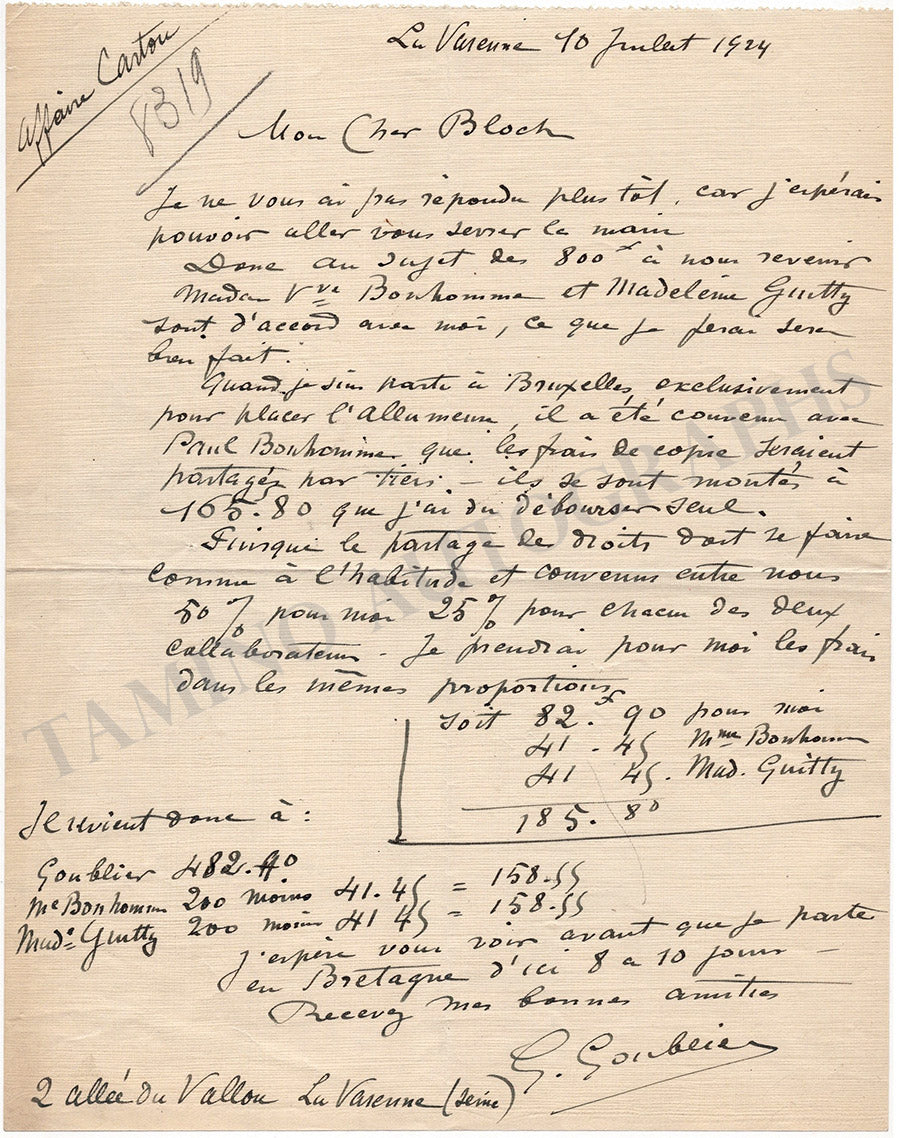 Affaire Carton
8319
La Varenne 10 Juillet 1924
Mon Cher Bloch
Je ne vous ai pas répondu plus tôt, car j'espérais
pouvoir aller vous serrer la main
Donc au sujet des 800 f à nous revenir
Madame Vve Bonhomme et Madeleine Guitty
sont d'accord avec moi, ce que je ferai sera
bien fait.
Quand je suis parti à Bruxelles exclusivement
pour placer l'Allumeuse, il a été convenu avec
Paul Bonhomme que les frais de copie seraient
partagés par tiers - ils se sont montés à
165.80 que j'ai du débourser seul.
Puisque le partage des droits doit se faire
comme à l'habitude et convenus entre nous
50 % pour moi 25 % pour chacun des deux
collaborateurs - Je prendrai pour moi les frais
dans les mêmes proportions
soit 82.f 90 pour moi
41 - 45 Mme Bonhomme
41 45. Mad. Guitty
185.80
Il revient donc à :
Goublier 482.90
Me Bonhomme 200 moins 41.45 = 158.55
Made Guitty 200 moins 41 45 = 158.55
J'espère vous voir avant que je parte
en Bretagne d'ici 8 a 10 jours -
Recevez mes bonnes amitiés
G. Goublier
2 allée du Vallon La Varenne (Seine)
TAMINO AUTOGRAPHS